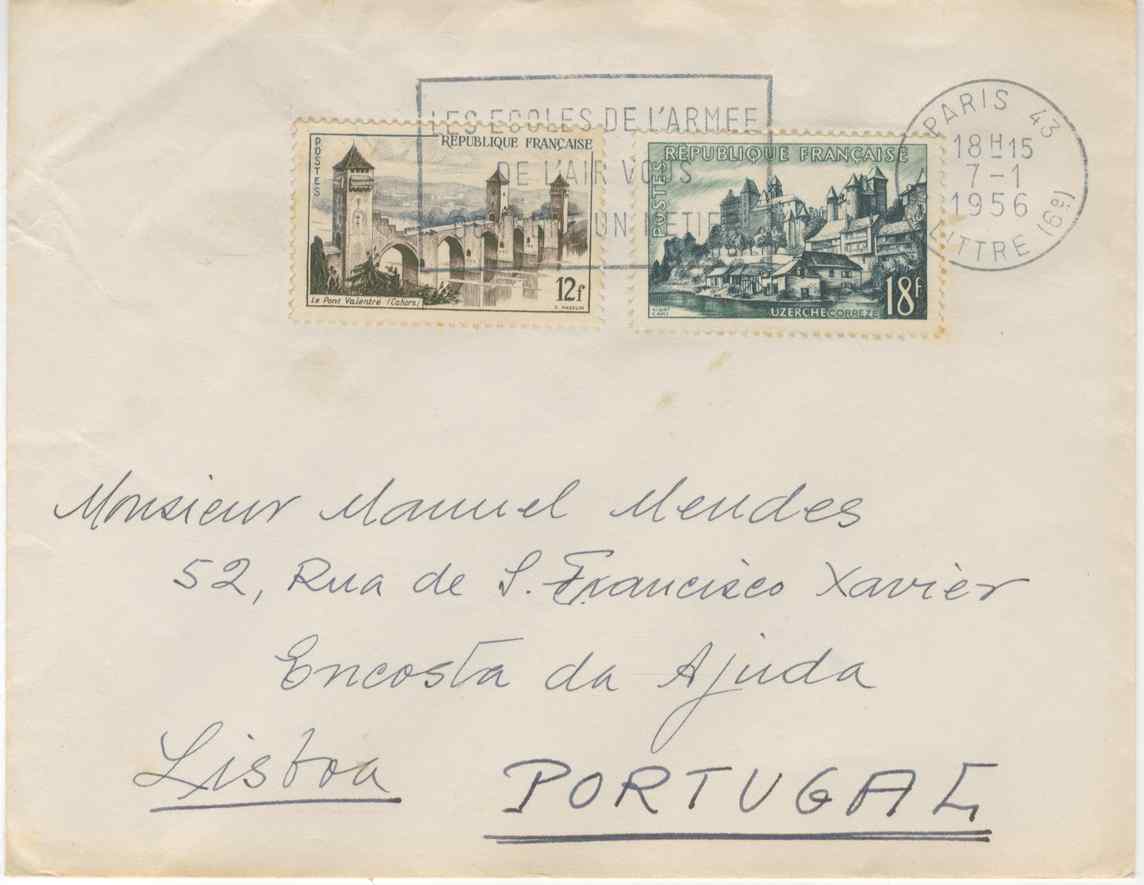 LES ECOLES DE L'ARMEE
DE L'AIR VOUS
UN METIER
PARIS 43
18H15
7-1
1956
LITTRE (6e)
POSTES
RÉPUBLIQUE FRANÇAISE
Le Pont Valentré (Cahors)
12f
POSTES
RÉPUBLIQUE FRANÇAISE
UZERCHE CORRÈZE
18f
Monsieur Manuel Mendes
52, Rua de S. Francisco Xavier
Encosta da Ajuda
Lisboa PORTUGAL